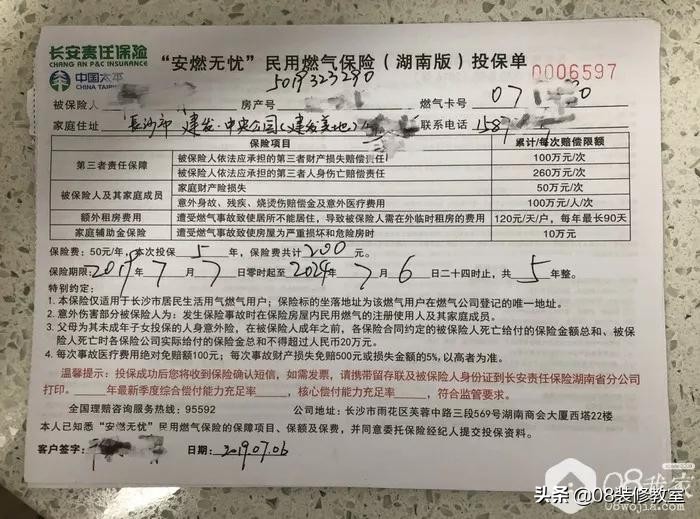 长安责任保险
CHANG AN P&C INSURANCE
中国太平
CHINA TAIPING
“安燃无忧”民用燃气保险（湖南版）投保单
0006597
5019323290
被保险人
房产号
燃气卡号 07
家庭住址 长沙市 建发·中央公园(建发美地)
联系电话 158
保险项目 累计/每次赔偿限额
第三者责任保障 被保险人依法应承担的第三者财产损失赔偿责任 100万元/次
被保险人依法应承担的第三者人身伤亡赔偿责任 260万元/次
被保险人及其家庭成员 家庭财产险损失 50万元/次
意外身故、残疾、烧烫伤赔偿金及意外医疗费用 100万元/人/次
额外租房费用 遭受燃气事故致使居所不能居住，导致被保险人需在外临时租房的费用 120元/天/户，每年最长90天
家庭辅助金保险 遭受燃气事故致使房屋为严重损坏和危险房时 10万元
保险费：50元/年，本次投保 5 年，保险费共计 200 元。
保险期限：2019 年 7 月 7 日零时起至 2024 年 7 月 6 日二十四时止，共 5 年整。
特别约定：
1. 本保险仅适用于长沙市居民生活用气燃气用户；保险标的坐落地址为该燃气用户在燃气公司登记的唯一地址。
2. 意外伤害部分被保险人为：发生保险事故时在保险房屋内民用燃气的注册使用人及其家庭成员。
3. 父母为其未成年子女投保的人身意外险，在被保险人成年之前，各保险合同约定的被保险人死亡给付的保险金额总和、被保
险人死亡时各保险公司实际给付的保险金总和不得超过人民币20万元。
4. 每次事故医疗费用绝对免赔额100元；每次事故财产损失免赔500元或损失金额的5%，以高者为准。
温馨提示：投保成功后您将收到保险确认短信，如需发票，请携带留存联及被保险人身份证到长安责任保险湖南省分公司
打印。 年最新季度综合偿付能力充足率 ，核心偿付能力充足率 ，符合监管要求。
全国理赔咨询服务热线：95592 公司地址：长沙市雨花区芙蓉中路三段569号湖南商会大厦西塔22楼
本人已知悉“安燃无忧”民用燃气保险的保障项目、保额及保费，并同意委托保险经纪人提交投保资料。
客户签字： 日期：2019.07.06
08我家
08wojia.com
头条 @08装修教室